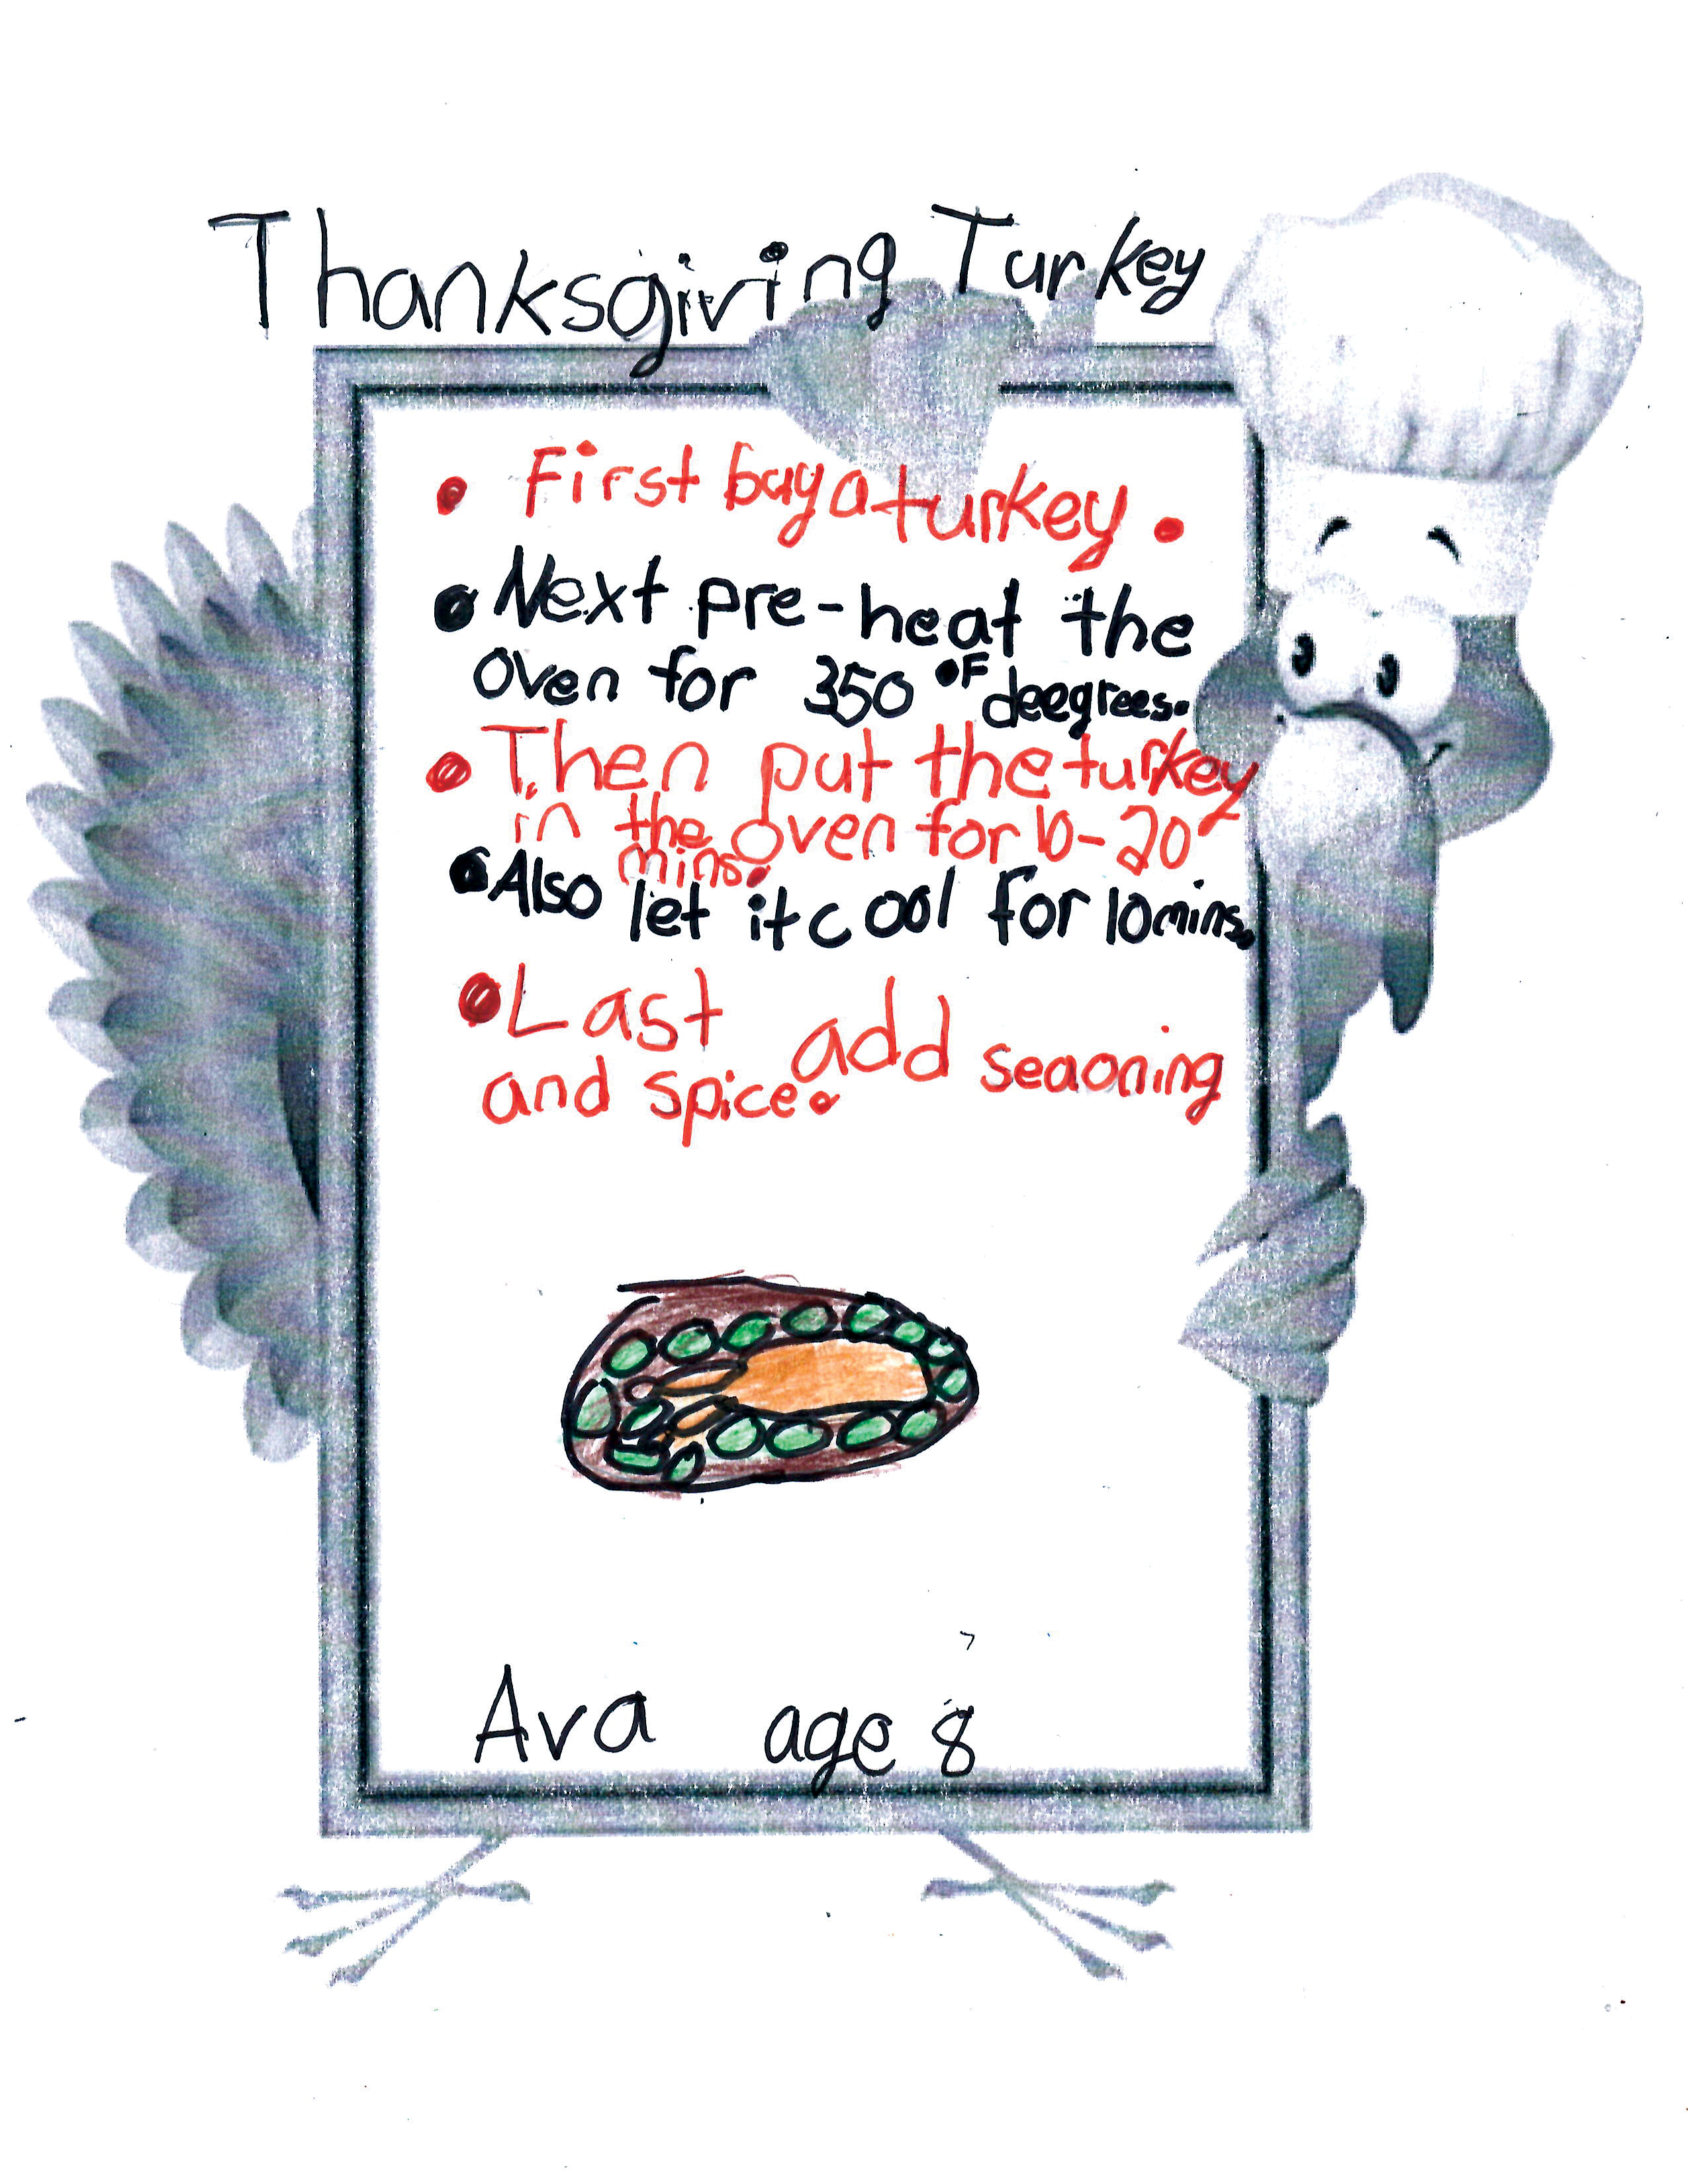 Thanksgiving Turkey
• First buy a turkey.
• Next pre-heat the
oven for 350 °F deegrees.
• Then put the turkey
in the oven for 10-20
mins.
• Also let it cool for 10 mins.
• Last add seaoning
and spice.
Ava age 8